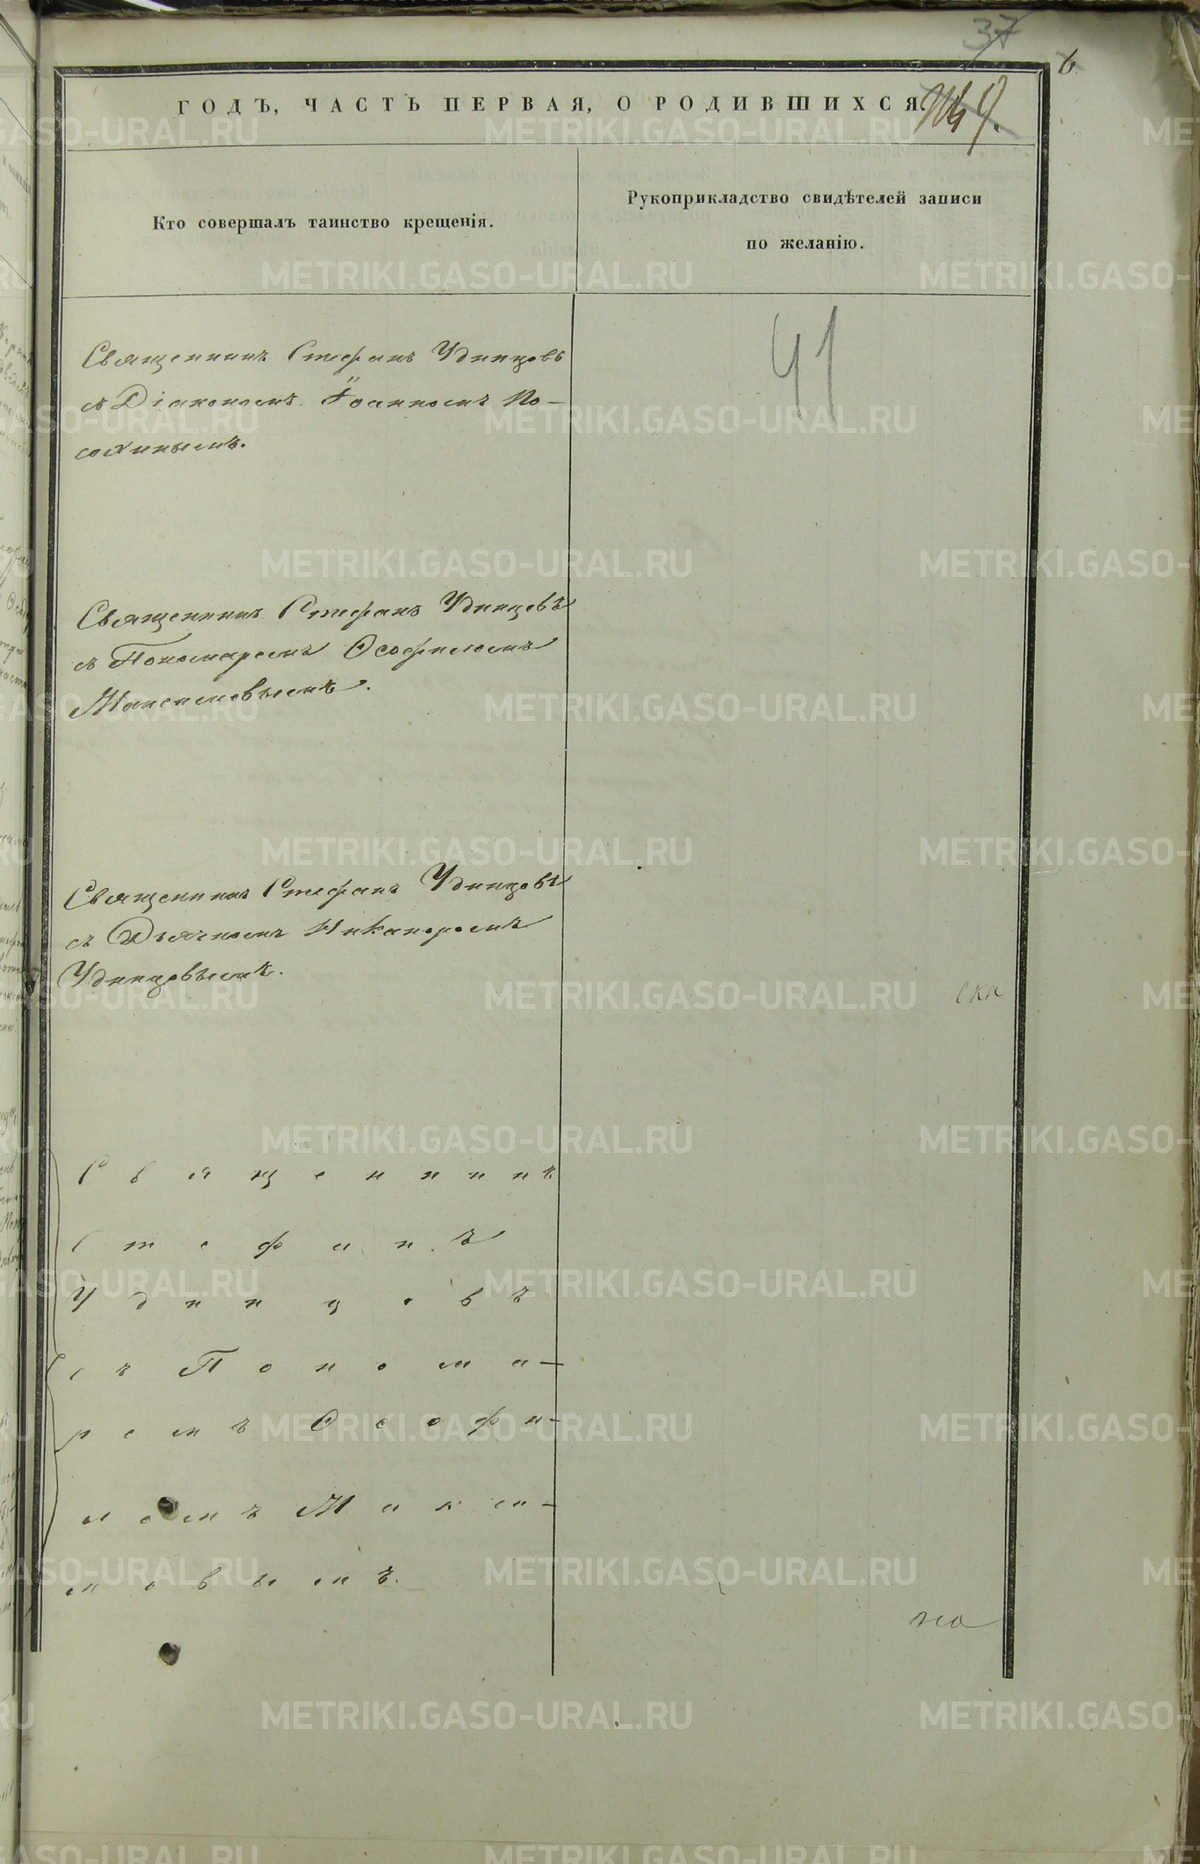 37
6.
ГОДЪ, ЧАСТЬ ПЕРВАЯ, О РОДИВШИХСЯ
Кто совершалъ таинство крещенія.
Рукоприкладство свидѣтелей записи
по желанію.
41
Священникъ Стефанъ Удинцовъ
съ Діакономъ Іоанномъ По-
сохинымъ.
Священникъ Стефанъ Удинцовъ
съ Пономаремъ Ѳеофиломъ
Максимовымъ.
Священникъ Стефанъ Удинцовъ
съ Дьячкомъ Никаноромъ
Удинцовымъ.
Священникъ
Стефанъ
Удинцовъ
съ Понома-
ремъ Ѳеофи-
ломъ Макси-
мовымъ.
ска
METRIKI.GASO-URAL.RU